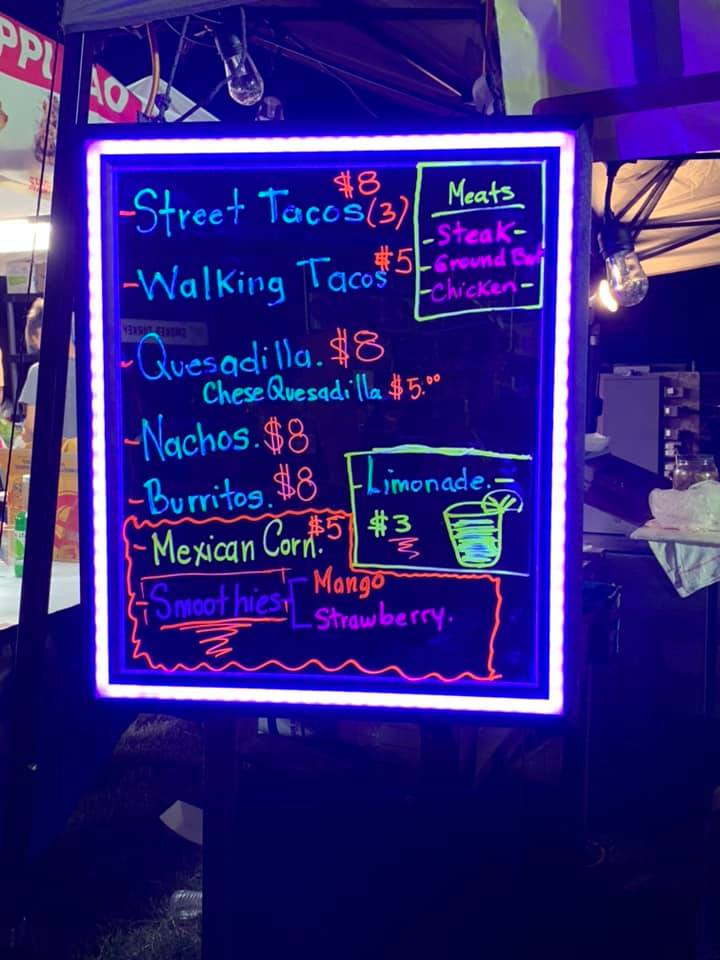 $8
-Street Tacos(3)
-Walking Tacos $5
-Quesadilla. $8
Chese Quesadilla $5.00
-Nachos. $8
-Burritos. $8
-Mexican Corn. $5
-Smoothies
Mango
Strawberry.
Meats
-Steak-
-Ground
-Chicken-
-Limonade.-
$3